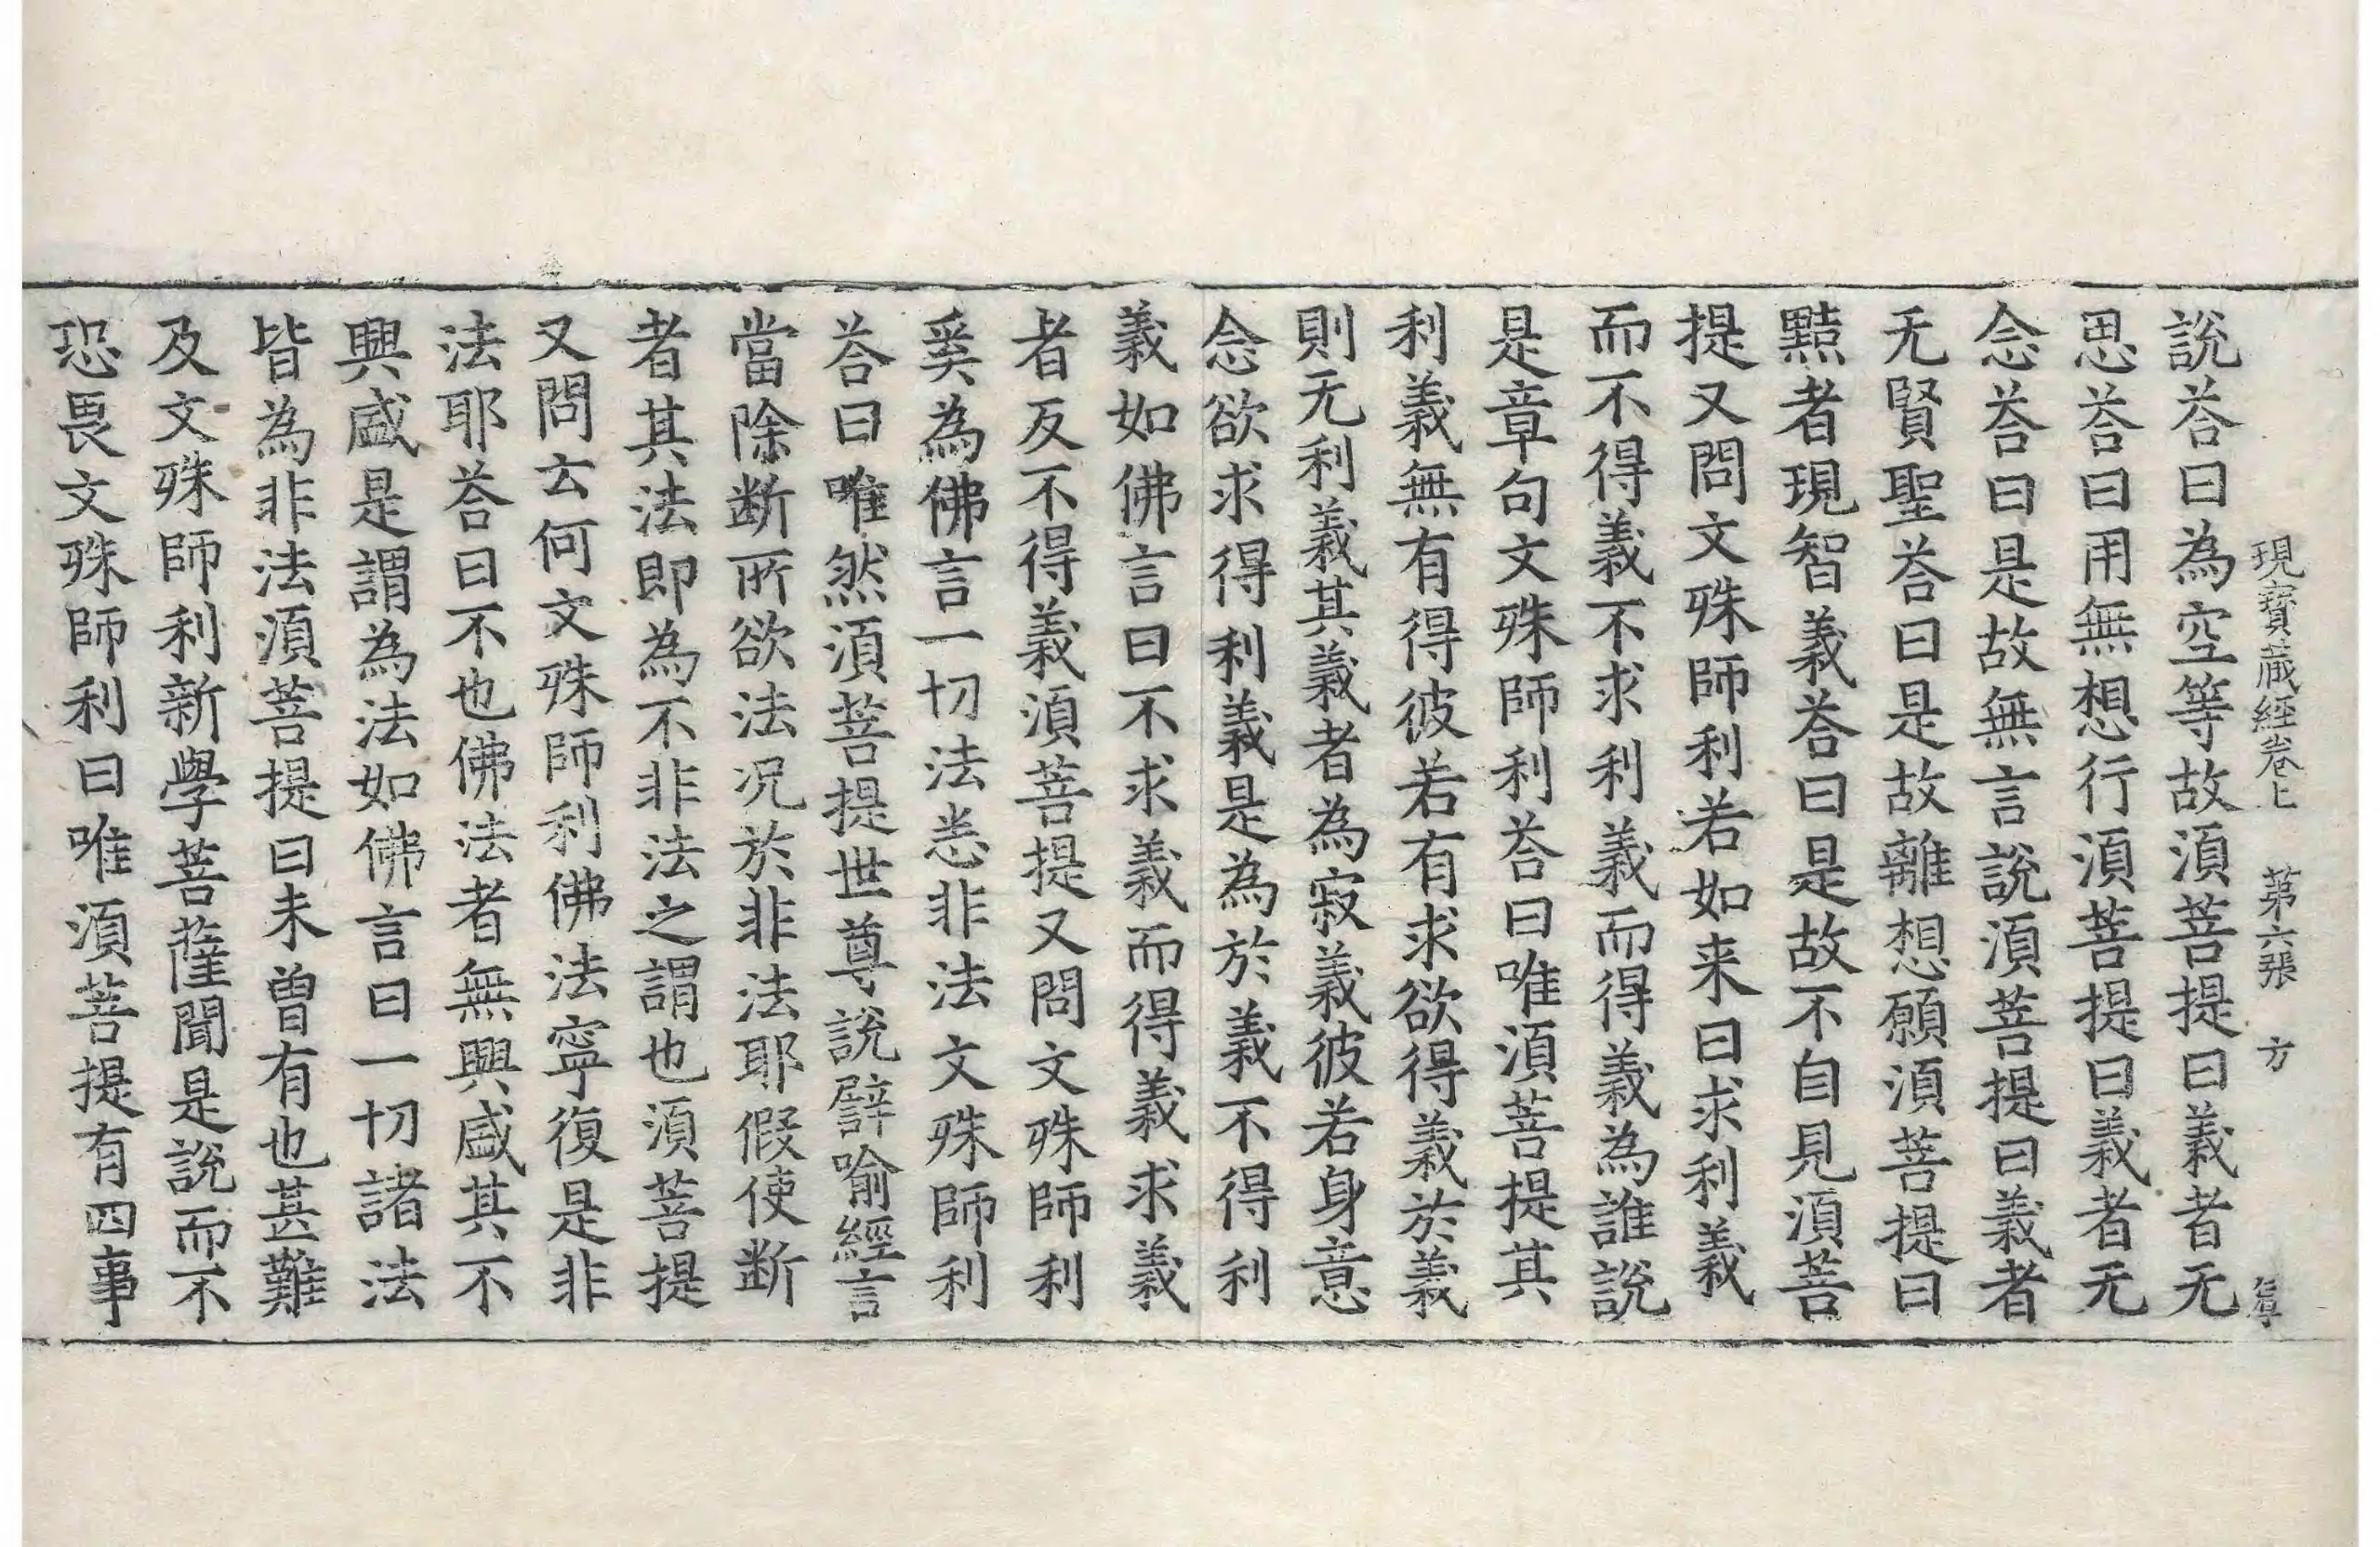 現寶藏經卷上 第六張 方
說荅曰為空等故須菩提曰義者无
思荅曰用無想行須菩提曰義者无
念荅曰是故無言說須菩提曰義者
无賢聖荅曰是故離想願須菩提曰
黠者現智義荅曰是故不自見須菩
提又問文殊師利若如来曰求利義
而不得義不求利義而得義為誰說
是章句文殊師利荅曰唯須菩提其
利義無有得彼若有求欲得義於義
則无利義其義者為寂義彼若身意
念欲求得利義是為於義不得利
義如佛言曰不求義而得義求義
者反不得義須菩提又問文殊師利
奚為佛言一切法悉非法文殊師利
荅曰唯然須菩提世尊說譬喻經言
當除断所欲法况於非法耶假使断
者其法即為不非法之謂也須菩提
又問云何文殊師利佛法寧復是非
法耶荅曰不也佛法者無興盛其不
興盛是謂為法如佛言曰一切諸法
皆為非法須菩提曰未曾有也甚難
及文殊師利新學菩薩聞是說而不
恐畏文殊師利曰唯須菩提有四事